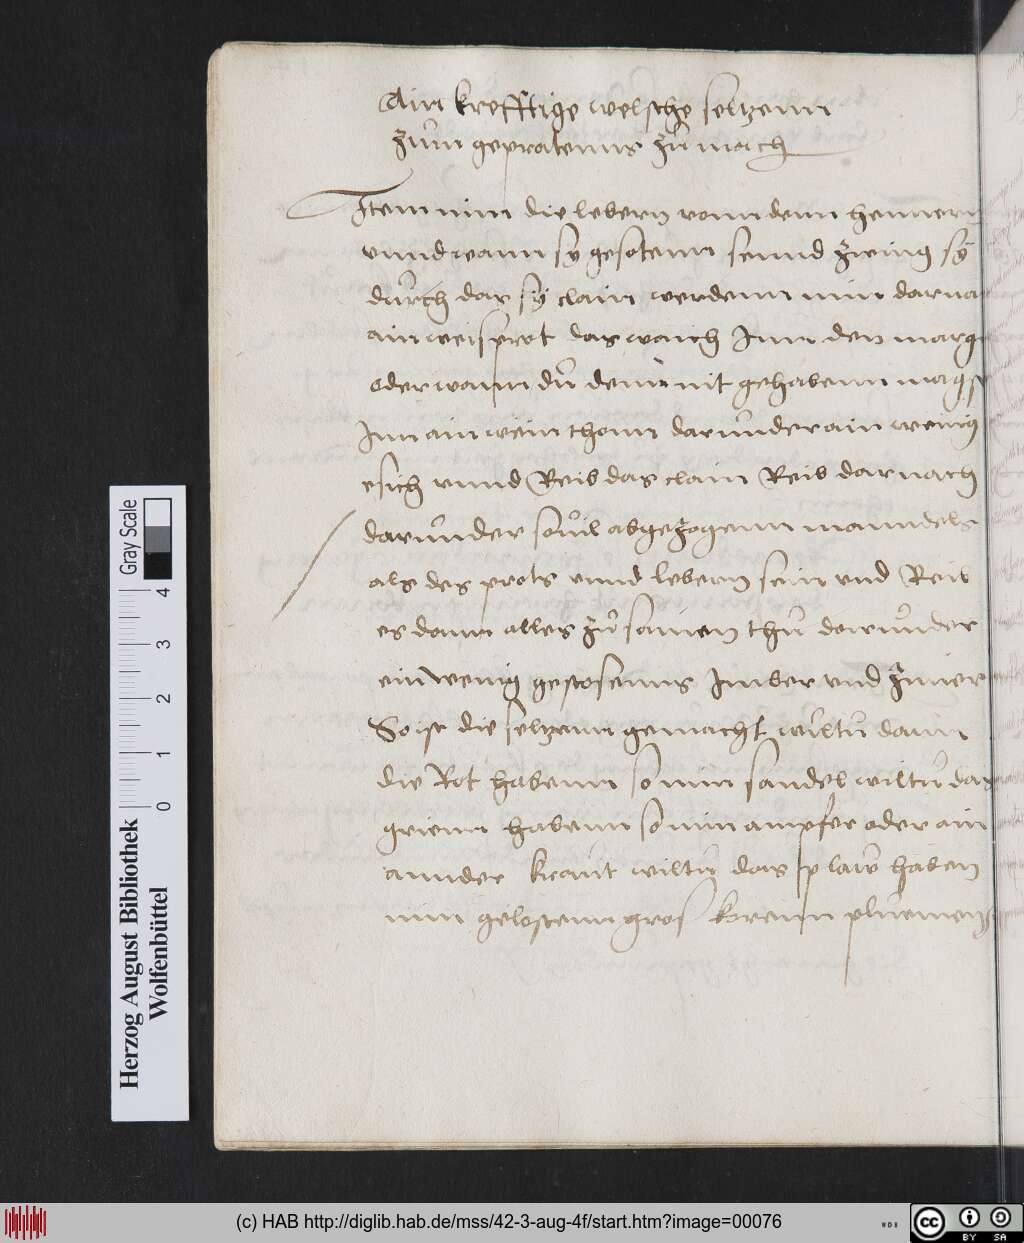 Ain krefftige welsche seltzenn
zum gepratenns zu mach
Item nim die lebern vonn denn hennern
vnnd wann sy gesotenn sennd zwing sy
durch das sy clain werdenn nim darna
ain weisprot das waich Inn den marg
oder wann du denn nit gehabenn magst
Inn ain wein thonn darunder ain wenig
esich vnnd Reib das clain Reib darnach
darunder souil abgezogenn manndels
als des prots vnnd lebern sein vnd Reib
es dann alles zu samen thu darunder
ein wenig gestosenns Imber vnd Zimer
So ist die seltzenn gemacht wiltu dann
die Rot habenn so nim sandel wiltu das
grienn habenn so nim ampfer oder ain
annder kraut wiltu das plaw haben
nim gelostenn gros korenn pluemen
Herzog August Bibliothek
Wolfenbüttel
0 1 2 3 4
Gray Scale
(c) HAB http://diglib.hab.de/mss/42-3-aug-4f/start.htm?image=00076
WDB
cc BY SA